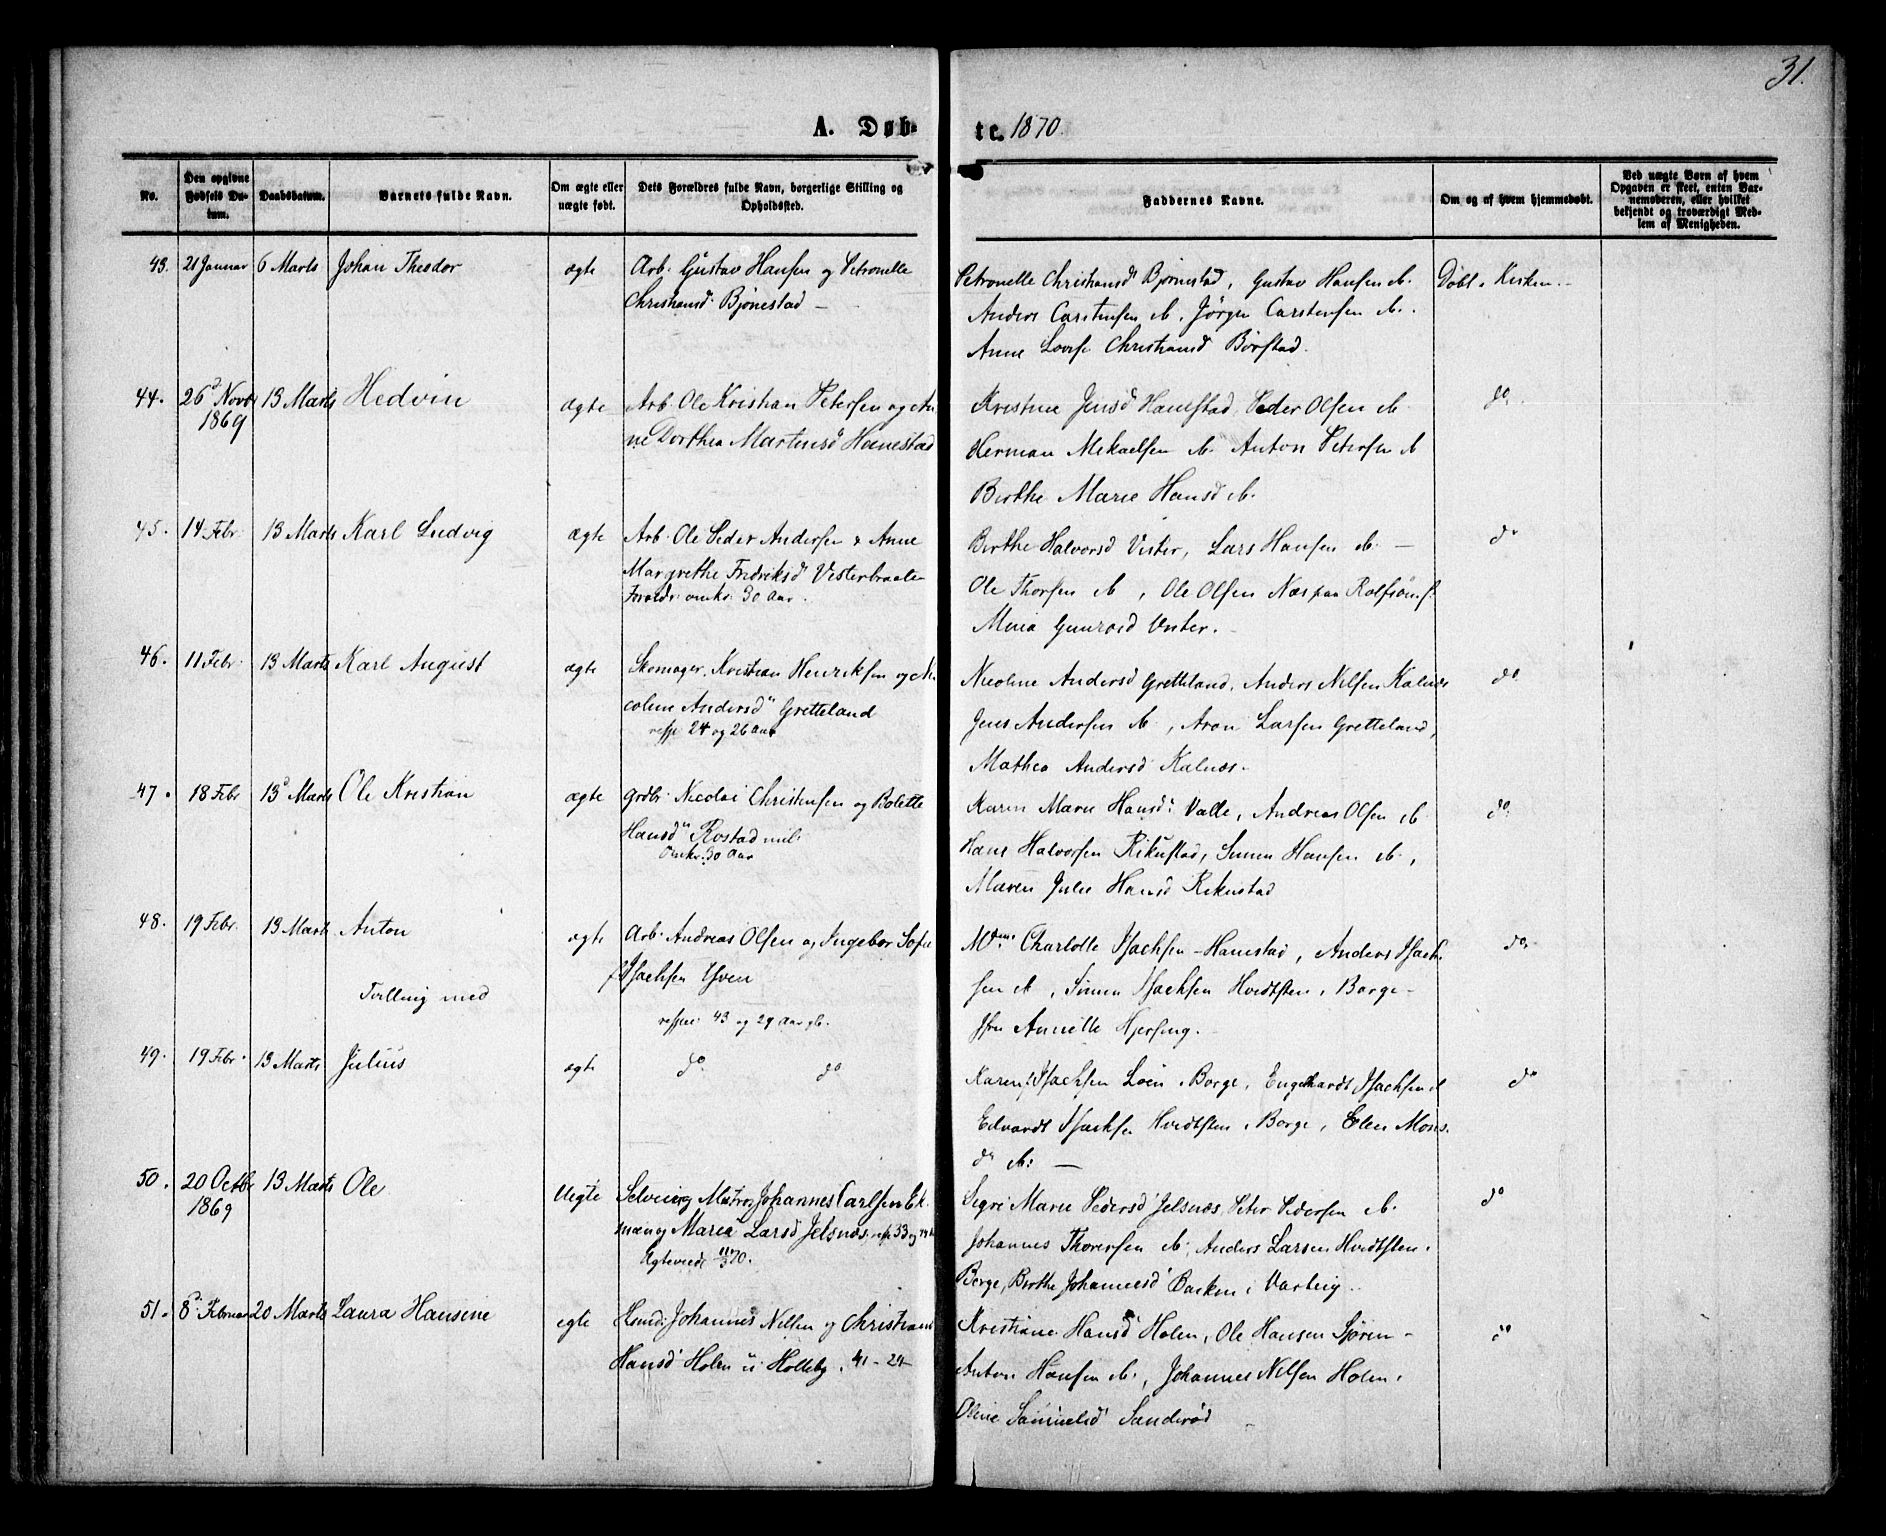 31.
A. Døb-
te. 1870.
No.
Den opgivne Fødsels Da-tum.
Daabsdatum.
Barnets fulde Navn.
Om ægte eller uægte født.
Dets Forældres fulde Navn, borgerlige Stilling og Opholdssted.
Faddernes Navne.
Om og af hvem hjemmedøbt.
Ved uægte Børn af hvem Opgaven er skeet, enten Bar-nemoderen, eller hvilket bekjendt og troværdigt Med-lem af Menigheden.
43. 21 Januar 6 Marts Johan Theodor ægte Arb. Gustav Hansen og Petronelle
Christiansd. Bjørnestad —
Petronelle Christiansd Bjørnestad, Gustav Hansen ib. Døbt i Kirken.
Anders Carstensen ib. Jørgen Carstensen ib.
Anne Lovise Christiansd Børstad.
44. 26d Novbr 13 Marts Hedvin ægte Arb. Ole Kristian Petersen og An-
1869
ne Dorthea Martinsd Hanestad
Kristine Jensd Hanestad, Peder Olsen ib. do.
Herman Mikaelsen ib. Anton Petersen ib
Birthe Marie Hansd ib.
45. 14 Febr. 13 Marts Karl Ludvig ægte Arb. Ole Peder Andersen & Anne
Margrethe Fredriksd Vesterbraate
Foraldr. omkr. 30 Aar.
Birthe Halvorsd Vister, Lars Hansen ib. — do
Ole Thorsen ib, Ole Olsen Næs paa Rolfsø
Vister.
46. 11 Febr. 13 Marts Karl August ægte Skomager Kristian Henriksen og Ni-
coline Andersd Gretteland
resp 24 og 26 Aar
Nicoline Andersd Gretteland, Anders Nilsen Kalnæs do
Jens Andersen ib., Aron Larsen Gretteland,
Mathea Andersd Kalnæs.
47. 18 Febr 13d Marts Ole Kristian ægte Grdbr. Nicolai Christensen og Bolette
Hansd Rostad
Omkr. 30 Aar
Karen Marie Hansd. Valle, Andreas Olsen ib do.
Hans Halvorsen Rikustad, Simen Hansen ib.,
Maren Julie Hansd Rikustad
48. 19 Febr. 13 Marts Anton ægte Arb. Andreas Olsen og Ingebor Sofie
f. Isachsen Yven
Tvilling med
43 og 29 Aar gl.
Charlotte Isachsen Hanestad, Anders Isach- do.
sen ib, Simen Isachsen Hvidtsten i Borge
Annette Hjersing.
49. 19 Febr. 13 Marts Julius ægte do. do
Karen Isachsen Loen i Borge, Engebardt Isachsen ib do
Edvardt Isachsen Hvidtsten i Borge, Elen Mons-
dr ib. —
50. 20 Octbr 13 Marts Ole Uegte Selveier og Matros Johannes Carlsen Ek-
1869
man og Maria Larsd Jelsnæs, resp 33 og
Ægteviede 11/3 70.
Sigri Marie Pedersd Jelsnæs, Peter Pedersen ib. do
Johannes Thoresen ib. Anders Larsen Hvidtsten i
Borge, Birthe Johannesd Bakken i Varteig.
51. 8d Februar 20 Marts Laura Hansine egte Johannes Nilsen og Christiane
Hansd Holen u. Holleby. 41 – 24
Kristiane Hansd Holen, Ole Hansen Sjøren do
Anton Hansen ib., Johannes Nilsen Holen,
Oline Samuelsd Sanderød